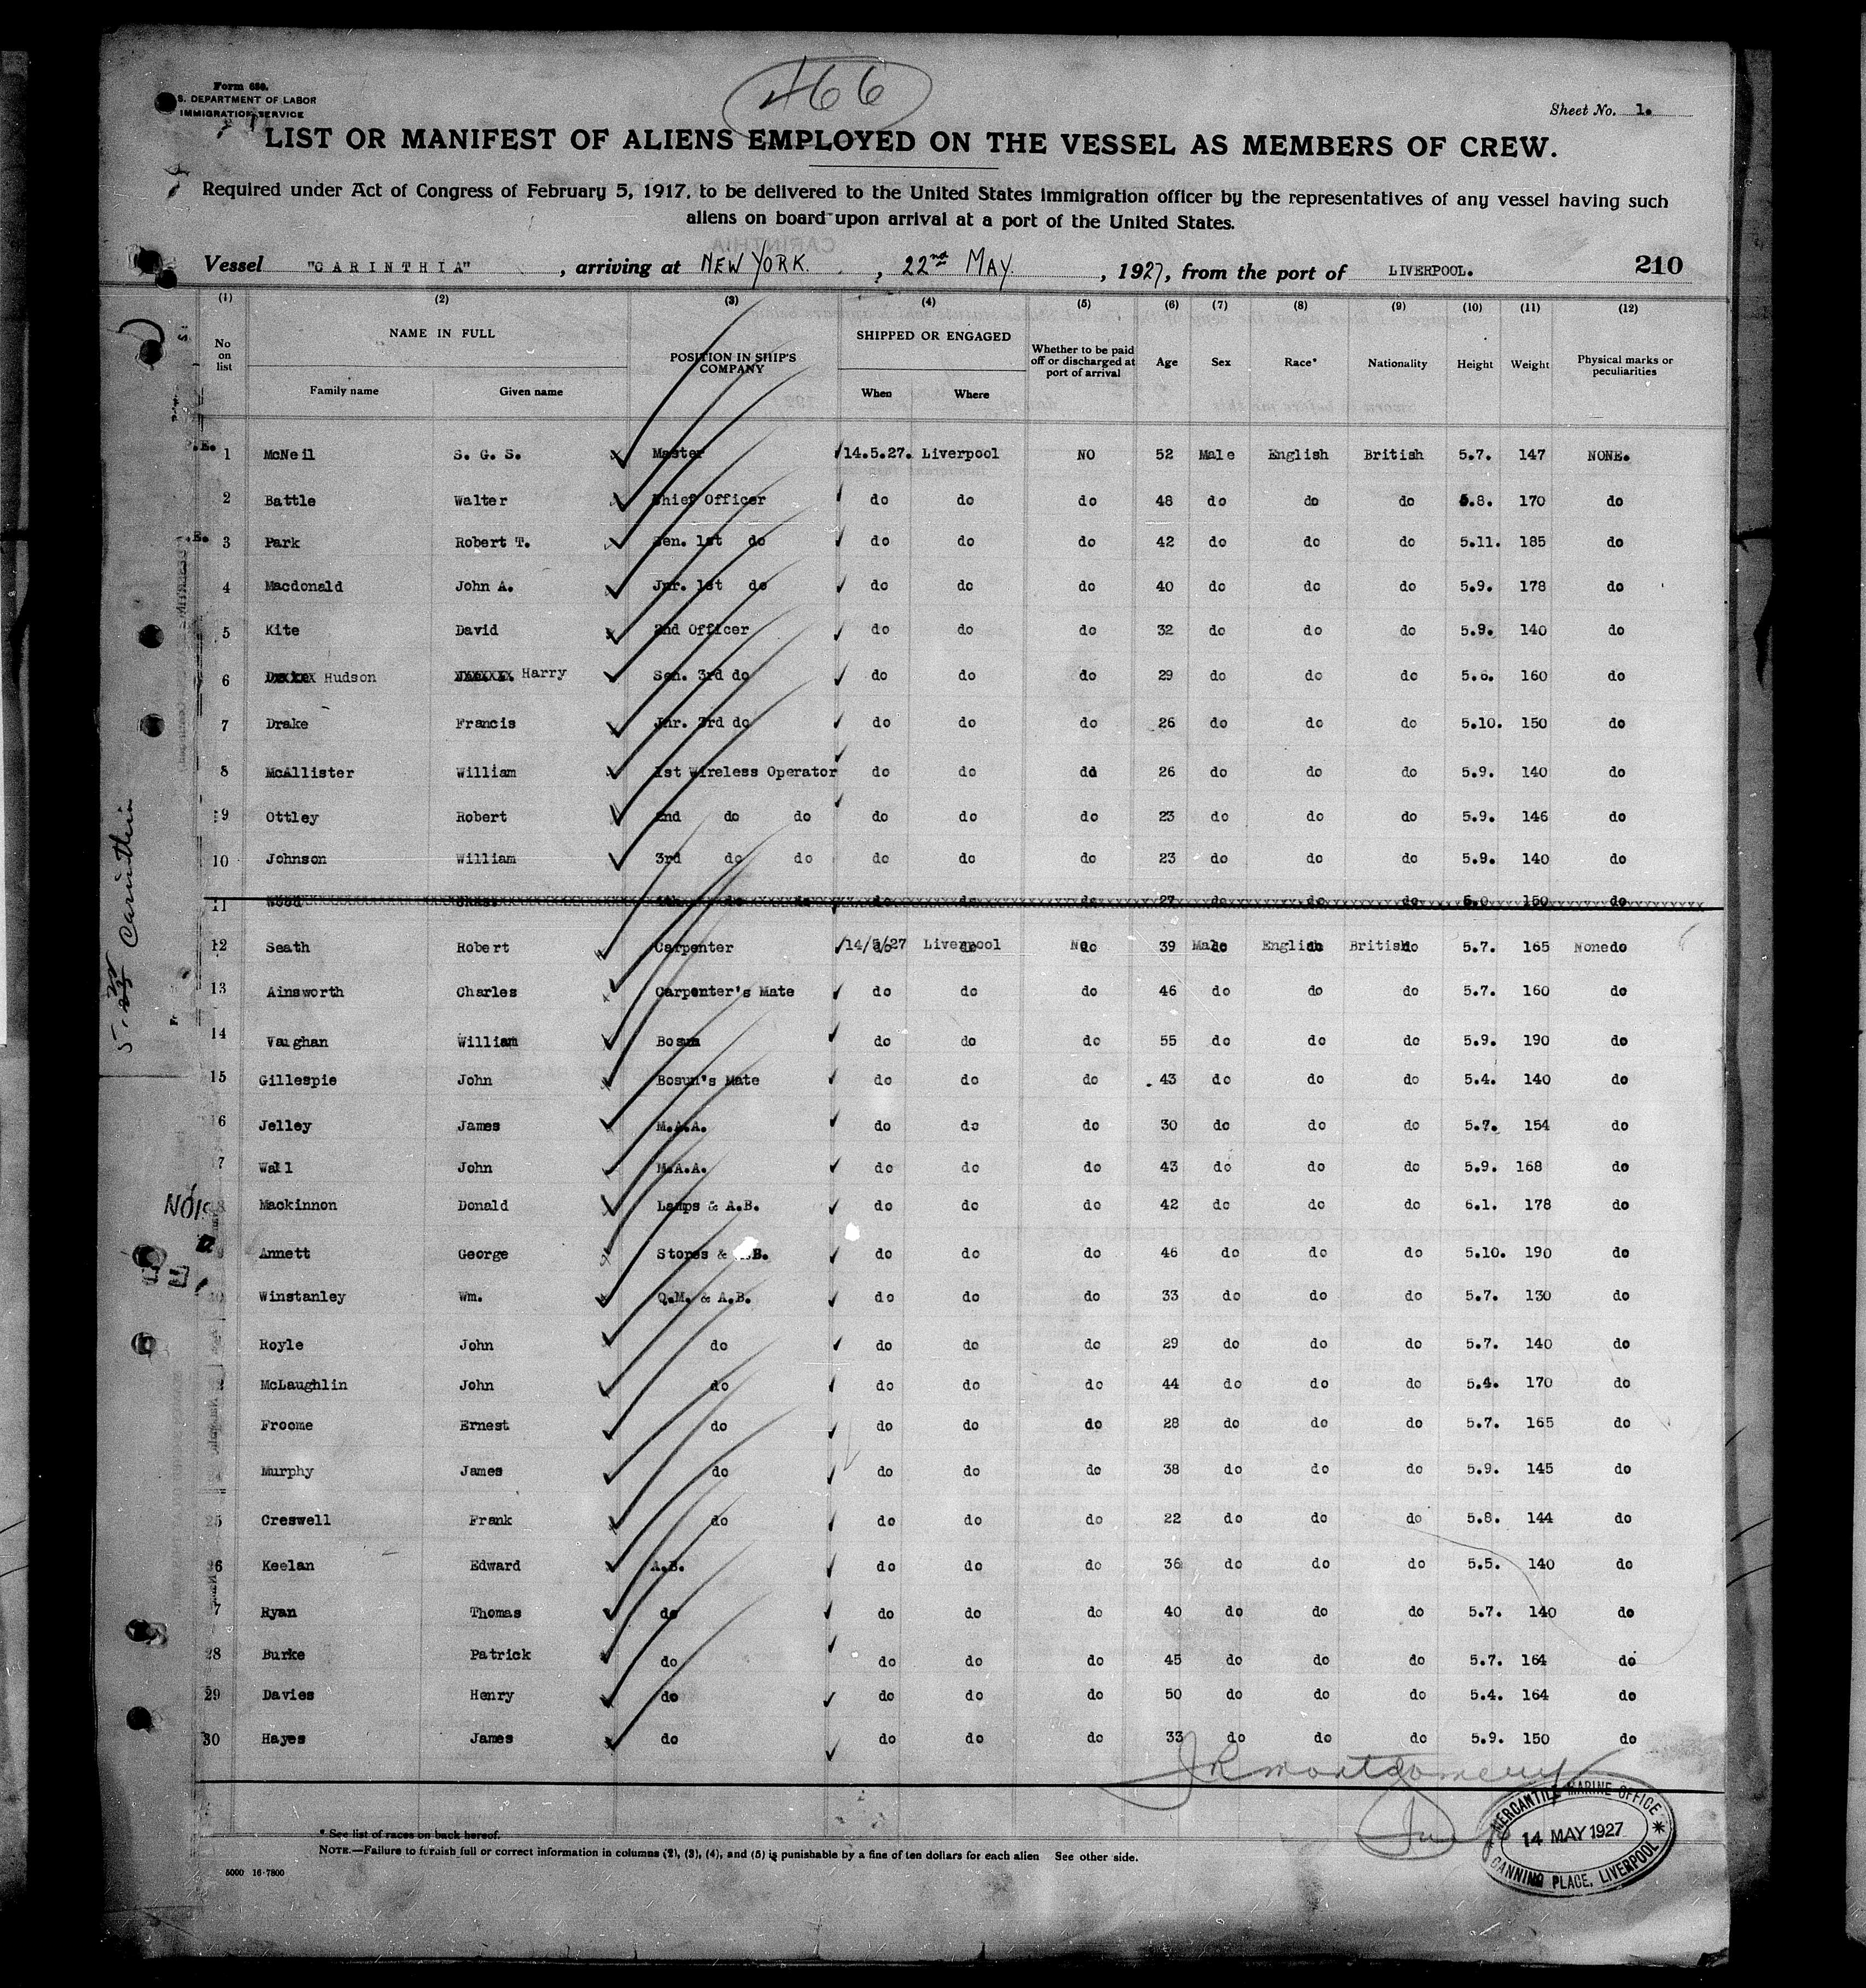 466
Form 680.
S. DEPARTMENT OF LABOR
IMMIGRATION SERVICE
Sheet No. 1.
LIST OR MANIFEST OF ALIENS EMPLOYED ON THE VESSEL AS MEMBERS OF CREW.
Required under Act of Congress of February 5, 1917, to be delivered to the United States immigration officer by the representatives of any vessel having such
aliens on board upon arrival at a port of the United States.
Vessel "CARINTHIA" , arriving at NEW YORK. , 22nd MAY. , 1927, from the port of LIVERPOOL. 210
(1) (2) (3) (4) (5) (6) (7) (8) (9) (10) (11) (12)
No on list NAME IN FULL Family name Given name POSITION IN SHIP'S COMPANY SHIPPED OR ENGAGED When Where Whether to be paid off or discharged at port of arrival Age Sex Race* Nationality Height Weight Physical marks or peculiarities
1 McNeil S. G. S. Master 14.5.27. Liverpool NO 52 Male English British 5.7. 147 NONE.
2 Battle Walter Chief Officer do do do 48 do do do 5.8. 170 do
3 Park Robert T. Sen. 1st do do do do 42 do do do 5.11. 185 do
4 Macdonald John A. Jnr. 1st do do do do 40 do do do 5.9. 178 do
5 Kite David 2nd Officer do do do 32 do do do 5.9. 140 do
6 Hudson Harry Sen. 3rd do do do do 29 do do do 5.6. 160 do
7 Drake Francis Jnr. 3rd do do do do 26 do do do 5.10. 150 do
8 McAllister William 1st Wireless Operator do do do 26 do do do 5.9. 140 do
9 Ottley Robert 2nd do do do do do 23 do do do 5.9. 146 do
10 Johnson William 3rd do do do do do 23 do do do 5.9. 140 do
11 Wood Chas. 4th do do do do do 27 do do do 6.0 150 do
12 Seath Robert Carpenter 14/5/27 Liverpool No 39 Male English British 5.7. 165 None do
13 Ainsworth Charles Carpenter's Mate do do do 46 do do do 5.7. 160 do
14 Vaughan William Bosun do do do 55 do do do 5.9. 190 do
15 Gillespie John Bosun's Mate do do do 43 do do do 5.4. 140 do
16 Jelley James M.A.A. do do do 30 do do do 5.7. 154 do
7 Wall John M.A.A. do do do 43 do do do 5.9. 168 do
8 Mackinnon Donald Lamps & A.B. do do do 42 do do do 6.1. 178 do
Annett George Stores & A.B. do do do 46 do do do 5.10. 190 do
Winstanley Wm. Q.M. & A.B. do do do 33 do do do 5.7. 130 do
Royle John do do do do 29 do do do 5.7. 140 do
2 McLaughlin John do do do do 44 do do do 5.4. 170 do
Froome Ernest do do do do 28 do do do 5.7. 165 do
24 Murphy James do do do do 38 do do do 5.9. 145 do
25 Creswell Frank do do do do 22 do do do 5.8. 144 do
26 Keelan Edward A.B. do do do 36 do do do 5.5. 140 do
7 Ryan Thomas do do do do 40 do do do 5.7. 140 do
28 Burke Patrick do do do do 45 do do do 5.7. 164 do
29 Davies Henry do do do do 50 do do do 5.4. 164 do
30 Hayes James do do do do 33 do do do 5.9. 150 do
J R Montgomery
MERCANTILE MARINE OFFICE
14 MAY 1927
CANNING PLACE, LIVERPOOL
* See list of races on back hereof.
NOTE.—Failure to furnish full or correct information in columns (2), (3), (4), and (5) is punishable by a fine of ten dollars for each alien See other side.
5000 16-7800
Carinthia